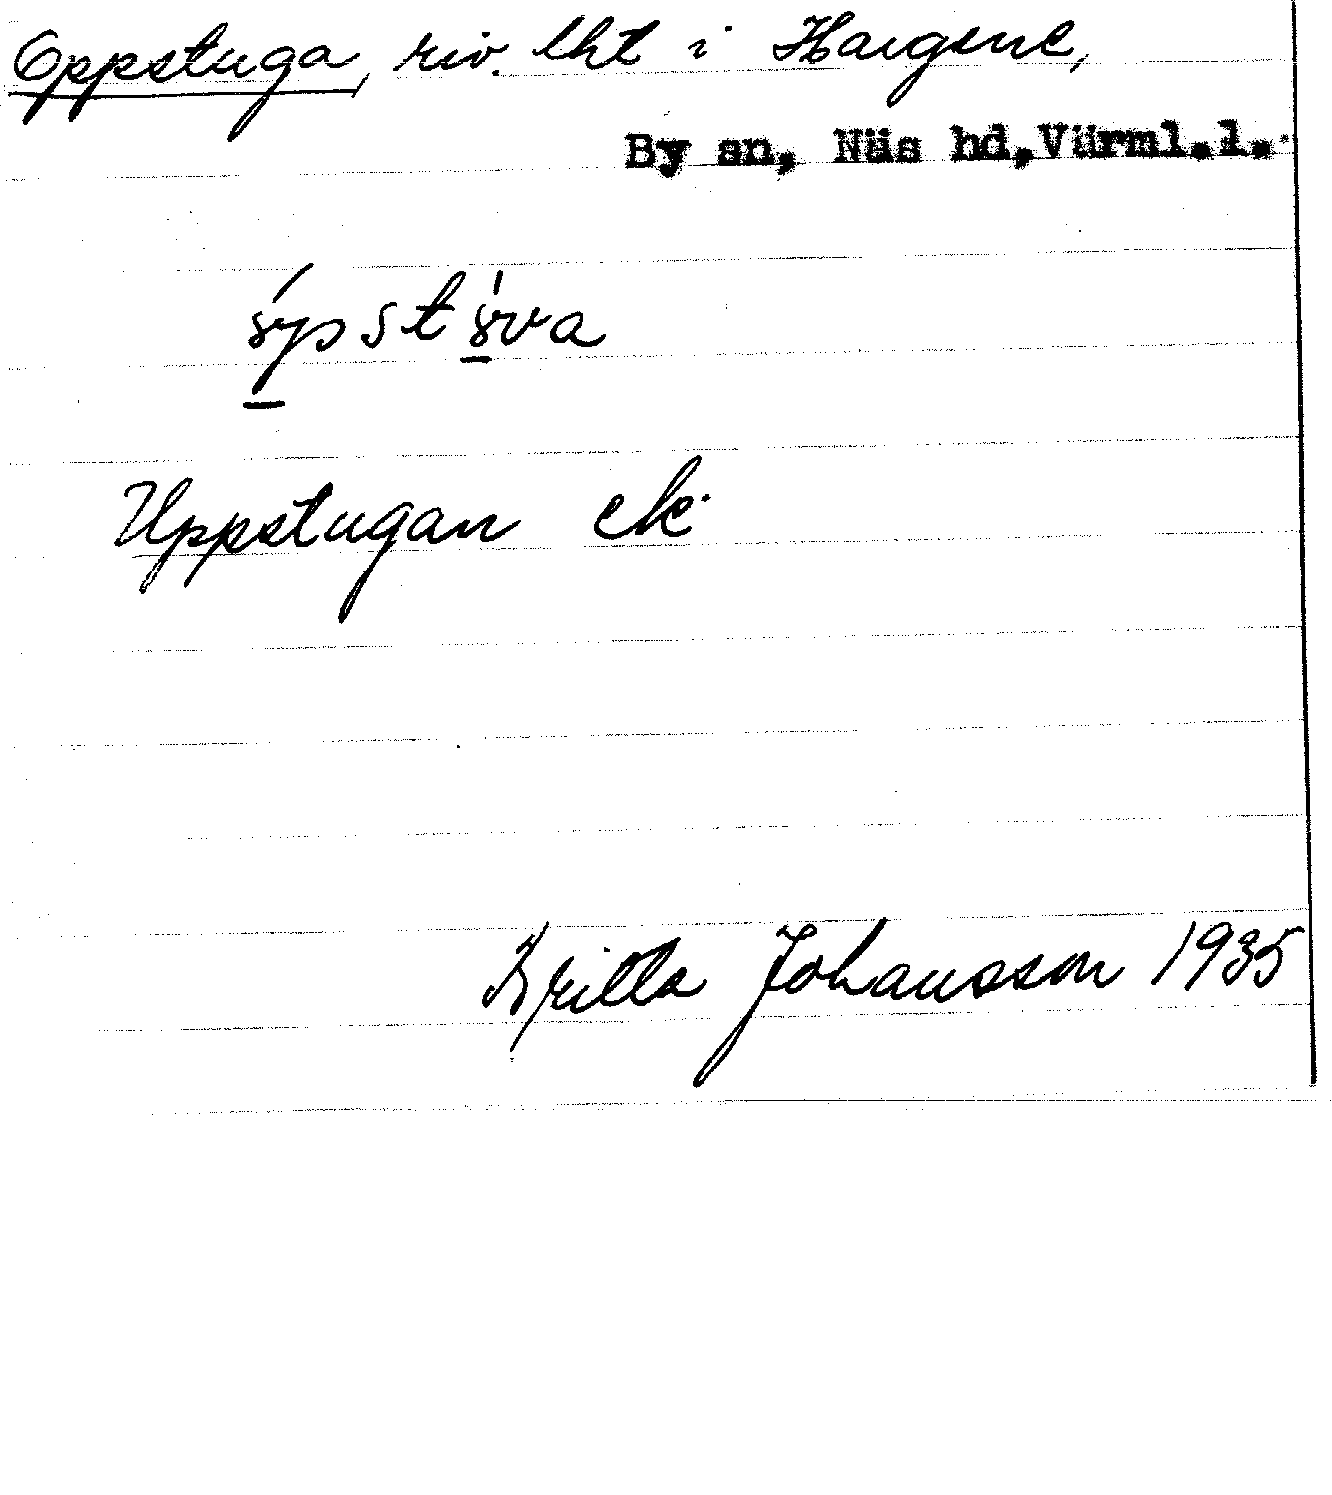 Oppstuga, riv. lht i Haugene,
By sn, Näs hd, Värml.l.
Uppstugan ek.
Britta Johansson 1935